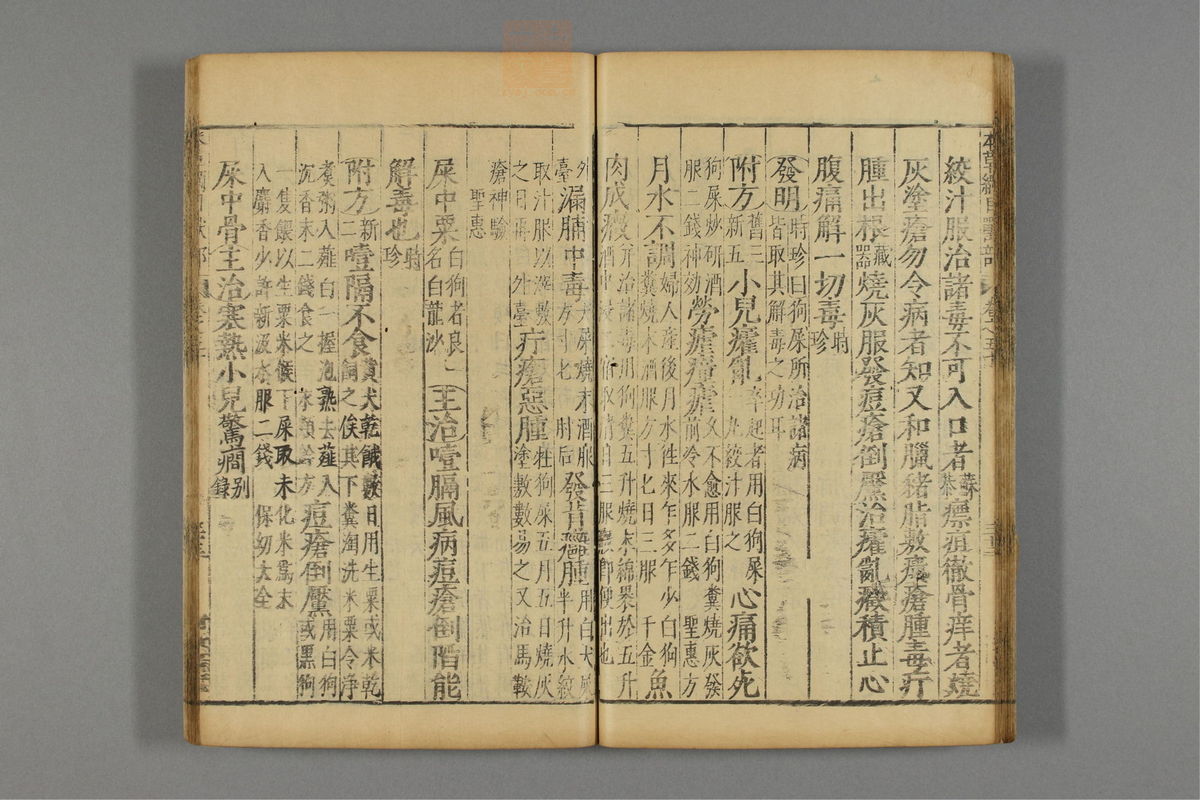 絞汁服治諸毒不可入口者蘇恭瘭疽徹骨痒者燒
灰塗瘡勿令病者知又和臘猪脂敷瘻瘡腫毒疔
腫出根藏器燒灰服發痘瘡倒黶治霍亂癥積止心
腹痛解一切毒時珍
發明時珍曰狗屎所治諸病皆取其解毒之功耳
附方舊三新五小兒霍亂卒起者用白狗屎一丸絞汁服之心痛欲死
狗屎炒研酒服二錢神効勞瘧瘴瘧久不愈用白狗糞燒灰發前冷水服二錢聖惠方
月水不調婦人產後月水往來乍多乍少白狗糞燒末酒服方寸匕日三服千金魚
肉成癥并治諸毒用狗糞五升燒末綿裹於五升酒中浸二宿取清日三服癥即便出也
外臺漏脯中毒犬屎燒末酒服方寸匕肘后發背癰腫用白犬屎半升水絞
取汁服以滓敷之日再外臺疔瘡惡腫牡狗屎五月五日燒灰塗敷數易之又治馬鞍
瘡神驗聖惠
屎中粟白狗者良一名白龍沙主治噎膈風病痘瘡倒陷能
解毒也時珍
附方新二噎隔不食黃犬乾餓數日用生粟或米乾飼之俟其下糞淘洗米粟令淨
煑粥入薤白一握泡熟去薤入沉香末二錢食之永類鈐方痘瘡倒黶用白狗或黑狗
一隻餵以生粟米候下屎取未化米爲末入麝香少許新汲水服二錢保幼大全
屎中骨主治寒熱小兒驚癇别錄